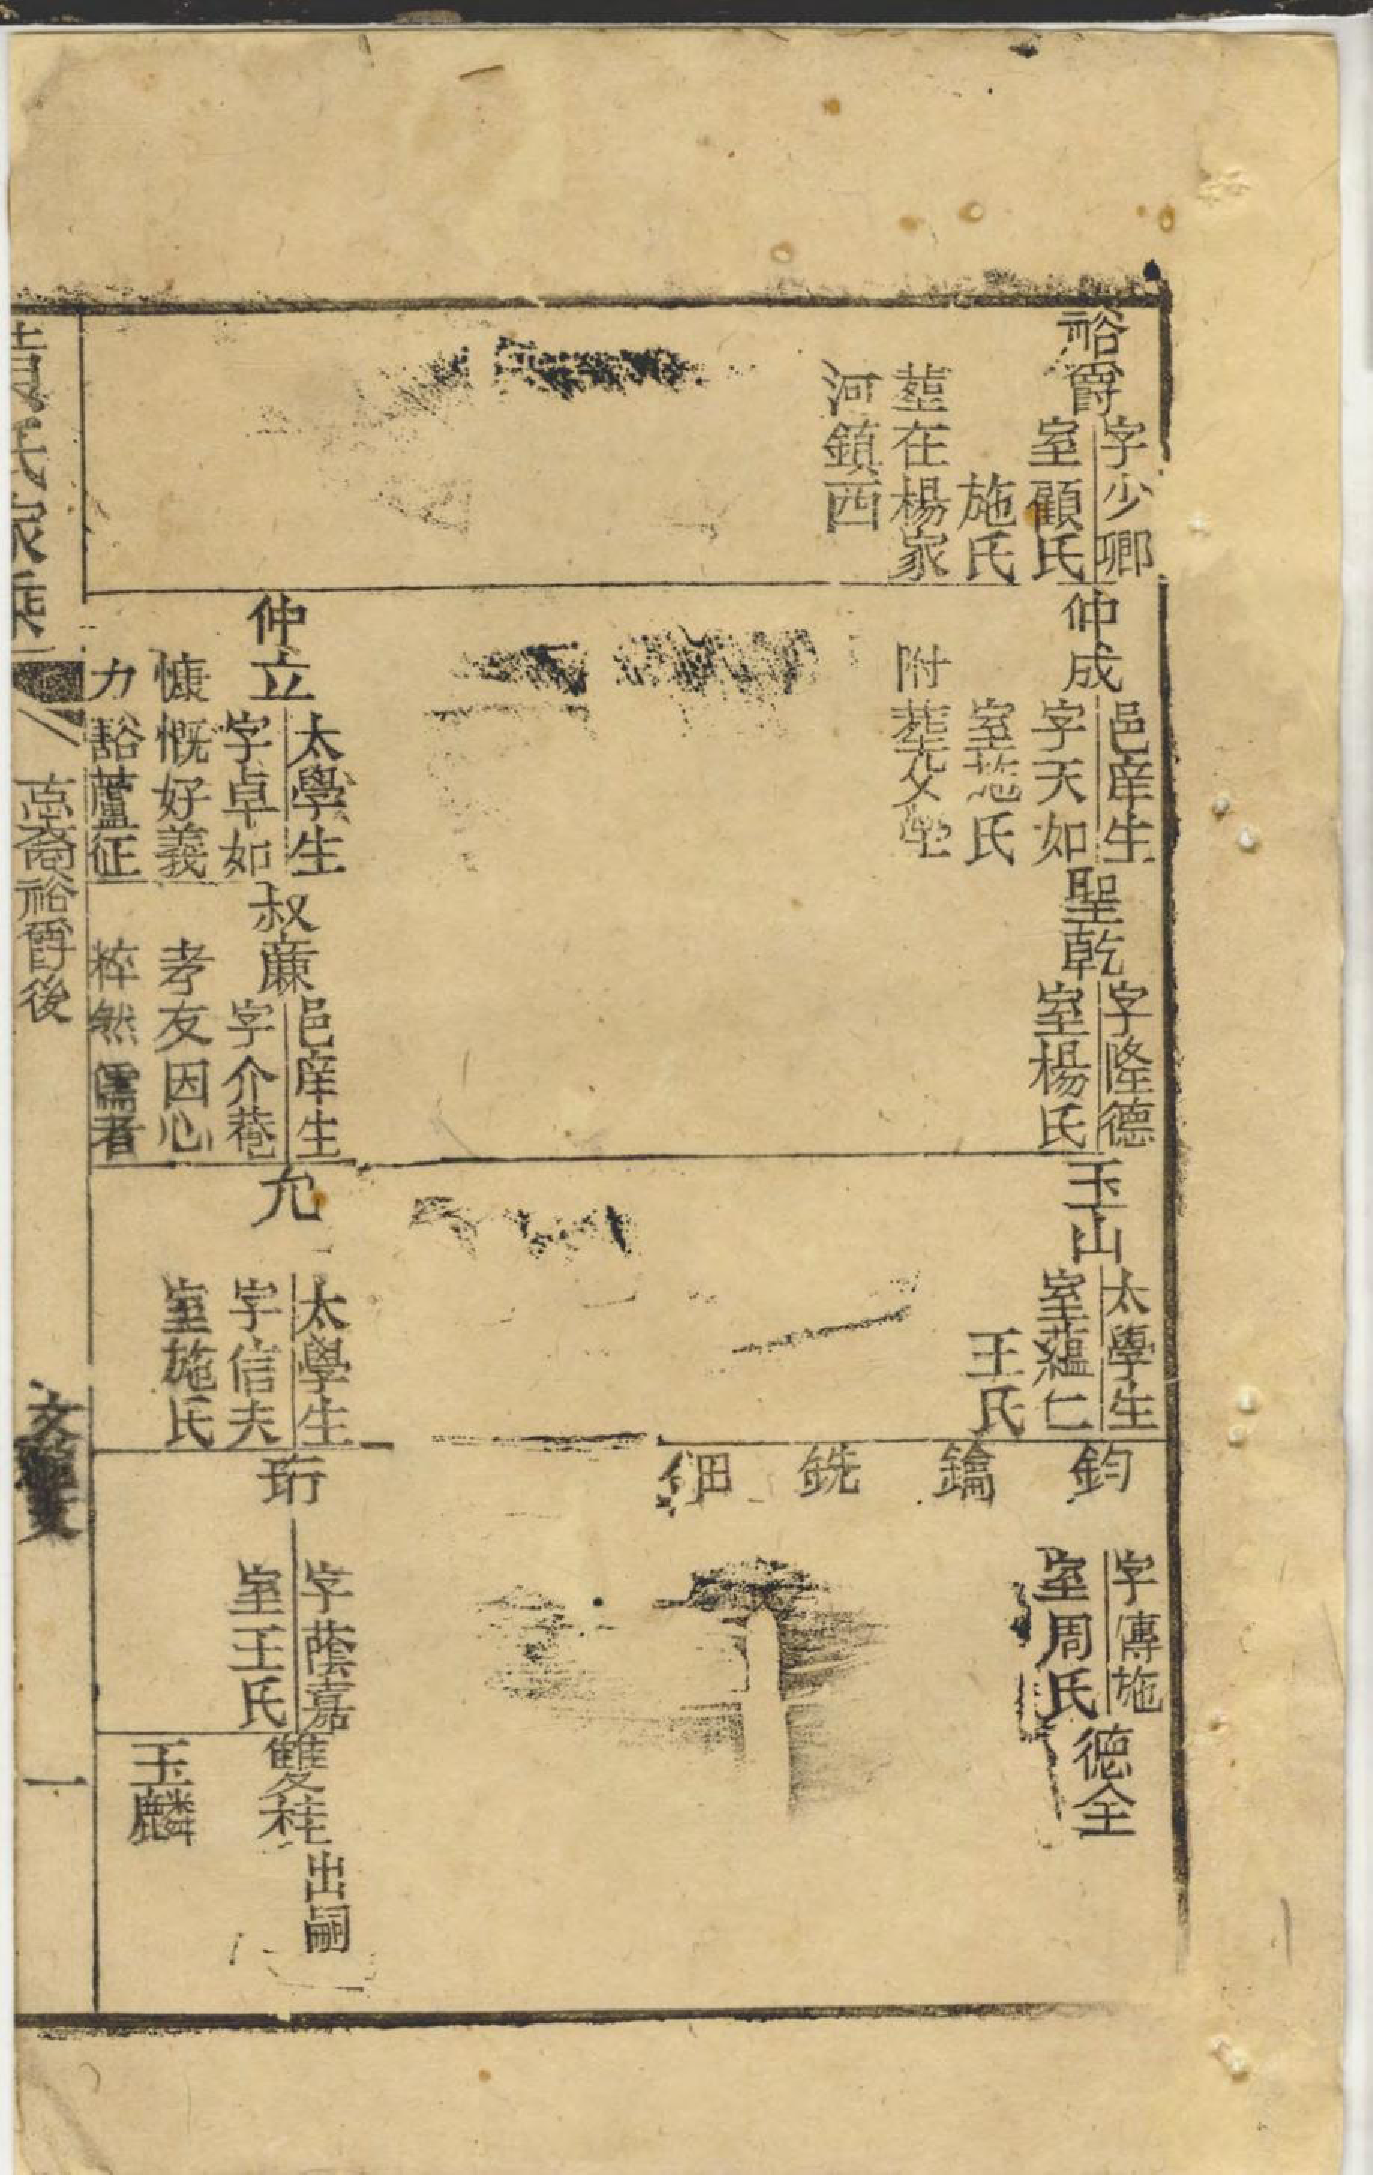 裕爵
字少卿
室顧氏
施氏
塟在楊家
河鎮西
仲成
邑庠生
字天如
室施氏
附塟父塋
聖乾
字隆德
室楊氏
玉山
太學生
室蘊仁
王氏
鈞
字傳施
室周氏
德全
鑰
銑
鈿
仲立
太學生
字卓如
慷慨好義
力豁蘆征
叔廉
邑庠生
字介菴
孝友因心
粹然儒者
允
太學生
字信夫
室施氏
珩
字蔭嘉
室王氏
雙桂出嗣
玉麟
黄氏家乘
裔裕爵後
一